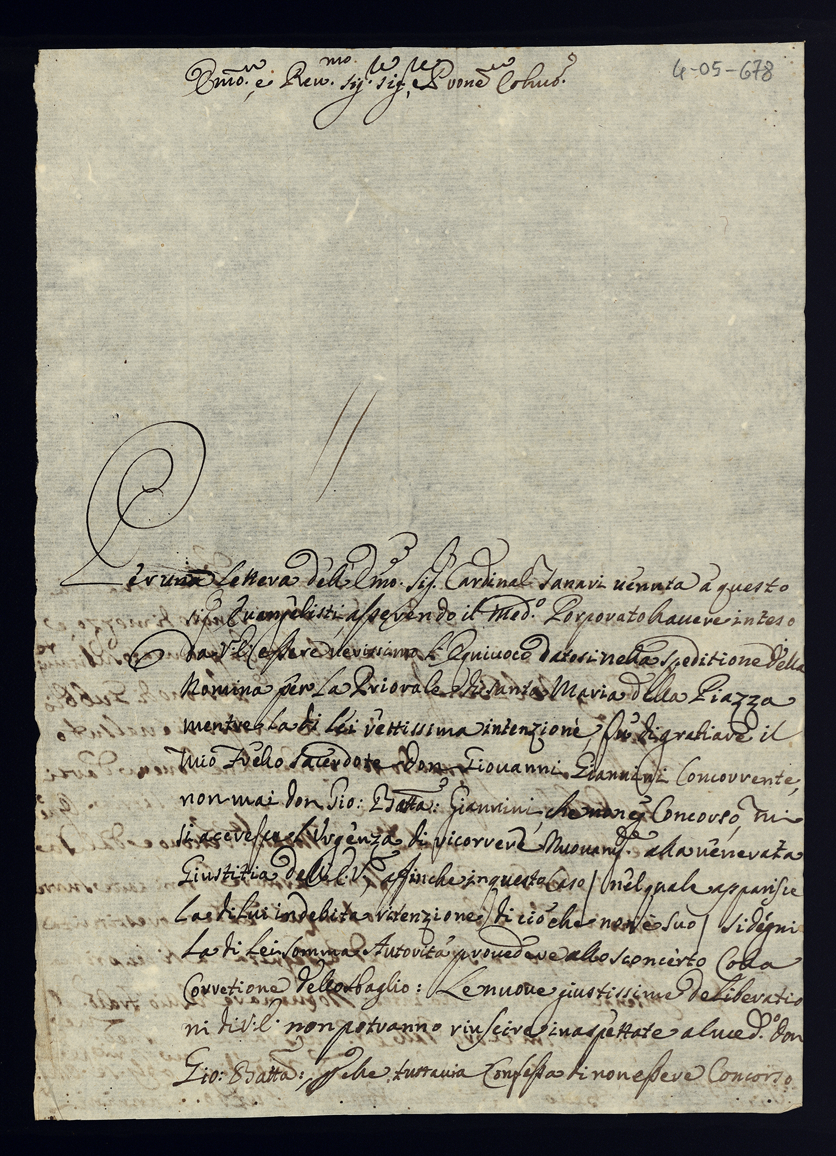 4-05-678
Emo. e Rev.mo sig. sig. e Pron.e Col.mo
Per una lettera dell'Emo. Sig. Cardinal Tanari venuta à questo
sig. Evangelisti, asserendo il med.o Porporato havere inteso
da V.E. essere verissimo l'Equivoco datosi nella speditione della
Nomina per la Priorale di santa Maria della Piazza
mentre la di lui rettissima intenzione, fù di gratiare il
mio F'ello sacerdote don Giovanni Giannini Concorrente,
non mai don Gio: Batta: Giannini, che non hà Concorso, mi
si accresce l'Urgenza di ricorrere Nuovam.te alla venerata
Giustitia dell'E.V. affinche in questo Caso / nel quale apparisce
la di lui indebita ritenzione di ciò che non è suo / si degni
la di lei somma Autorità provedere allo sconcerto Colla
Corretione dello sbaglio: Le nuove giustissime deliberatio
ni di V.E. non potranno riuscire inaspettate al med.o don
Gio: Batta:, che tuttavia Confessa di non essere Concorso